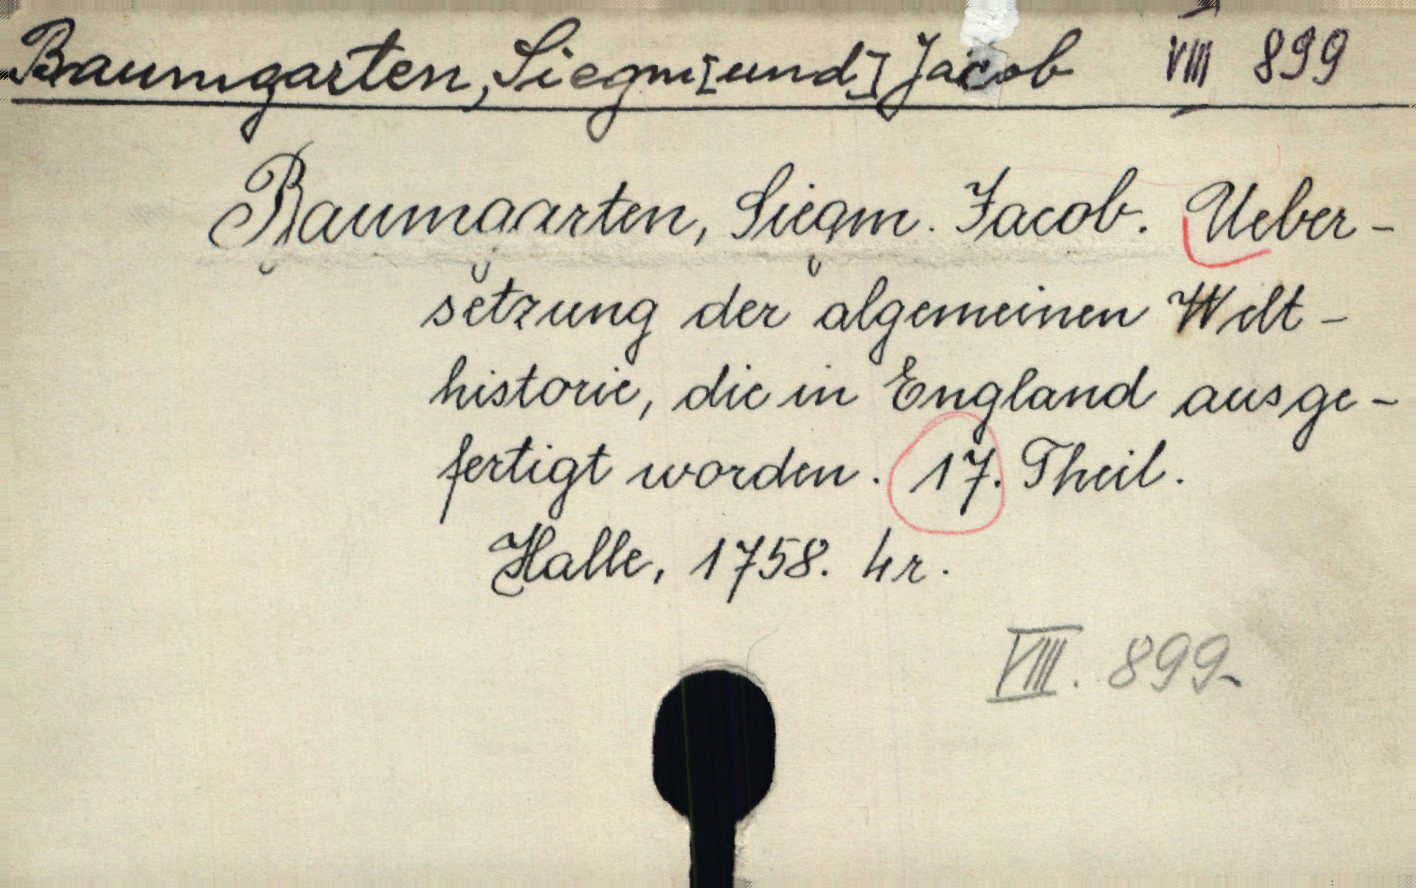 Baumgarten, Siegm[und] Jacob VIII 899
Baumgarten, Siegm. Jacob. Ueber-
setzung der algemeinen Welt-
historie, die in England ausge-
fertigt worden. 17. Theil.
Halle, 1758. 4r.
VIII. 899